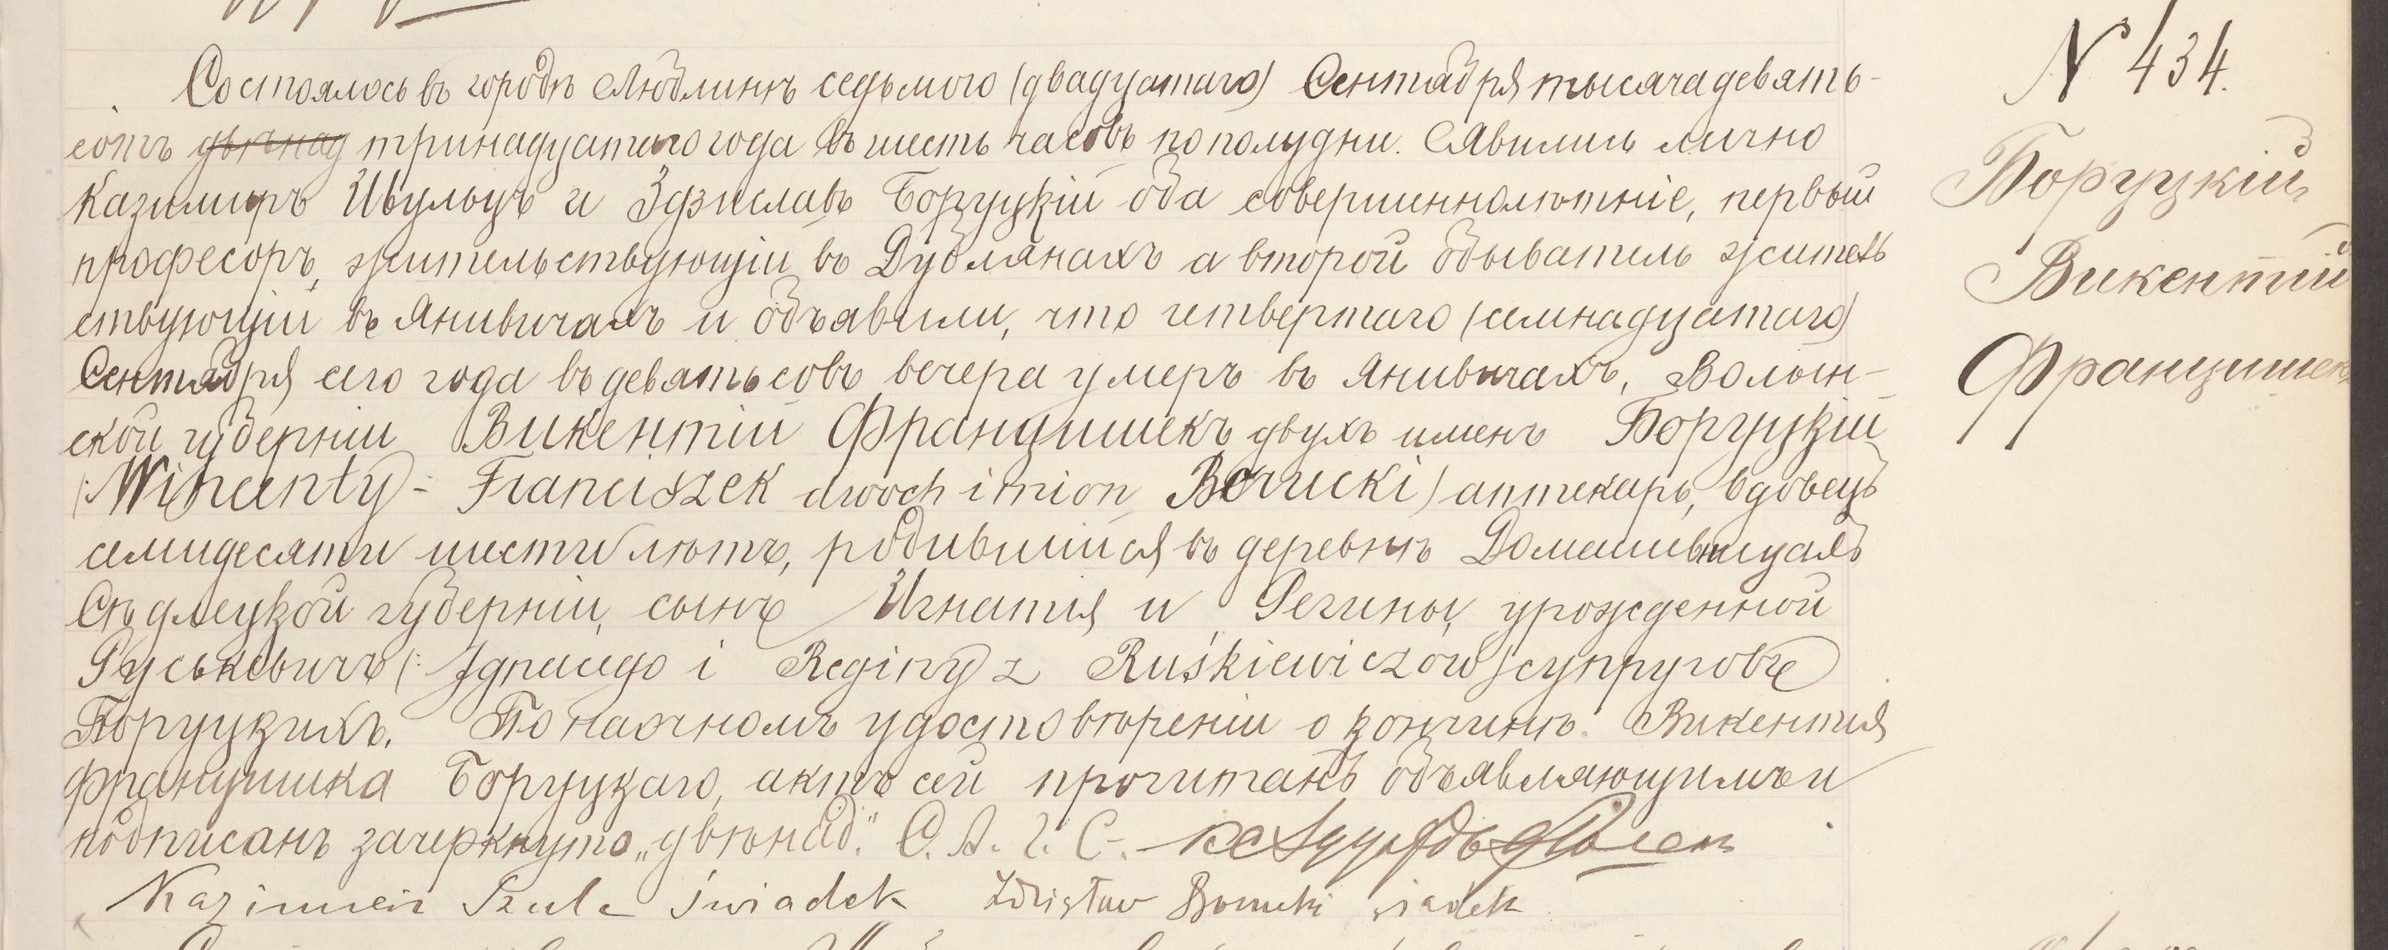 Состоялось въ городѣ Люблинѣ седьмого (двадцатаго) Сентября тысяча девять-
сотъ двѣнад тринадцатаго года въ шесть часовъ по полудни. Явились лично
Казимиръ Шульцъ и Здзиславъ Боруцкій оба совершеннолѣтніе, первый
професоръ, жительствующій въ Дублянахъ а второй обыватель житель
ствующій въ Янивичахъ и объявили, что четвертаго (семнадцатаго)
Сентября сего года въ девять совъ вечера умеръ въ Янивичахъ, Волын-
ской губерніи Викентій Францишекъ двухъ именъ Боруцкій
(: Wincenty - Franciszek dwoch imion Borucki) аптекарь, вдовецъ
семидесяти шести лѣтъ, родившийся въ деревнѣ Домашевницахъ
Сѣдлецкой губерніи, сынъ Игнатія и Регины, урожденной
Руськевичъ (: Ignacego i Reginy z Ruśkiewiczow) супруговъ
Боруцкихъ. По наочномъ удостовѣреніи о кончинѣ Викентія
Францишка Боруцкаго, актъ сей прочитанъ объявляющимъ и
подписанъ зачеркнуто „двѣнад." С. А. Г. С.
Kazimierz Szulc świadek Zdzisław Borucki świadek
N 434.
Боруцкій
Викентій
Францишек